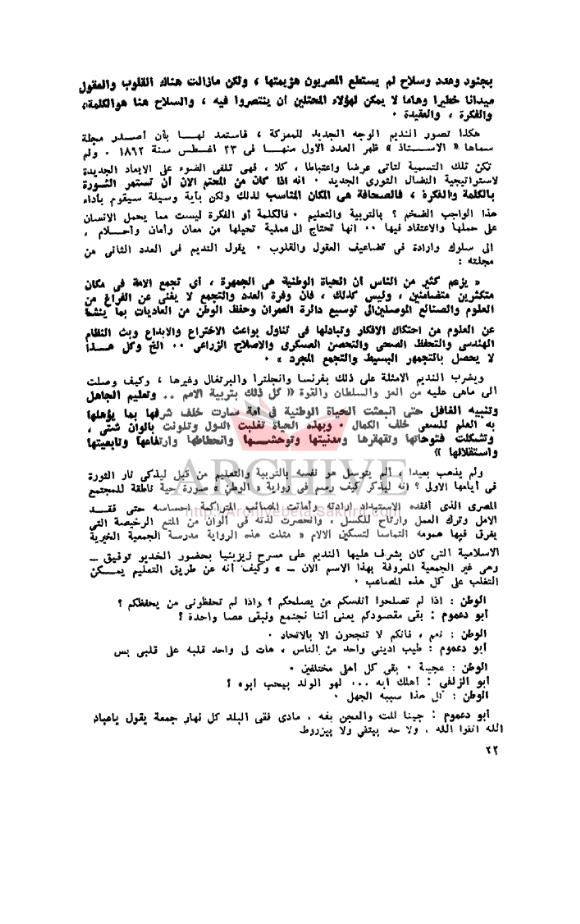 بجنود وعدد وسلاح لم يستطع المصريون هزيمتها ، ولكن مازالت هناك القلوب والعقول
ميدانا خطيرا وهاما لا يمكن لهؤلاء المحتلين أن ينتصروا فيه ، والسلاح هنا هوالكلمة،
والفكرة ، والعقيدة ·
هكذا تصور النديم الوجه الجديد للمعركة ، فاستعد لهـا بأن أصـدر مجلة
سماها « الاسـتاذ » ظهر العدد الاول منهـا فى ٢٣ اغسطس سنة ١٨٩٢ ٠ ولم
تكن تلك التسمية لتأتى عرضا واعتباطا ، كلا ، فهى تلقى الضوء على الابعاد الجديدة
لاستراتيجية النضال الثورى الجديد ٠ انه اذا كان من المحتم الآن أن تستمر الثـورة
بالكلمة والفكرة ، فالصحافة هى المكان المناسب لذلك ولكن بأية وسيلة سيقوم بأداء
هذا الواجب الضخم ؟ بالتربية والتعليم ٠ فالكلمة أو الفكرة ليست مما يحمل الانسان
على حملها والاعتقاد فيها ٠٠ انها تحتاج الى عملية تحيلها من معان وأمان وأحـلام ،
الى سلوك وارادة فى تضاعيف العقول والقلوب ٠ يقول النديم فى العدد الثانى من
مجلته :
« يزعم كثير من الناس أن الحياة الوطنية هى الجمهرة ، أى تجمع الامة فى مكان
متكثرين متضامنين ، وليس كذلك ، فان وفرة العدد والتجمع لا يغنى عن الفراغ من
العلوم والصنائع الموصلين الى توسيع دائرة العمران وحفظ الوطن من العاديات بما ينشأ
عن العلوم من احتكاك الافكار وتبادلها فى تناول بواعث الاختراع والابداع وبث النظام
الهندسى والتحفظ الصحى والتحصن العسكرى والاصلاح الزراعى ٠٠ الخ وكل هـذا
لا يحصل بالتجمهر البسيط والتجمع المجرد »
ويضرب النديم الامثلة على ذلك بفرنسا وانجلترا والبرتغال وغيرها ، وكيف وصلت
الى ماهى عليه من العز والسلطان والقوة « كل ذلك بتربية الامم ٠٠ وتعليم الجاهل
وتنبيه الغافل حتى انبعثت الحياة الوطنية فى أمة سارت خلف شرفها بما يؤهلها
به العلم للسعى خلف الكمال ٠ وبهذه الحياة تغلبت الدول وتلونت بألوان شتى ،
وتشكلت فتوحاتها وتقهقرها ومدنيتها وتوحشـها وانحطاطها وارتفاعها وتابعيتها
واستقلالها »
ولم يذهب بعيدا ، ألم يتوسل هو نفسه بالتربية والتعليم من قبل ليذكى نار الثورة
فى أيامها الاولى ؟ (نه ليذكر كيف رسم فى رواية « الوطن » صورة حية ناطقة للمجتمع
المصرى الذى أفقده الاستبداد ارادته وأماتت المصائب المتراكمة احساسه حتى فقـد
الامل وترك العمل وارتاح للكسل ، وانحصرت لذته فى ألوان من المتع الرخيصة التى
يغرق فيها همومه التماسا لتسكين الالام « مثلت هذه الرواية مدرسة الجمعية الخيرية
الاسلامية التى كان يشرف عليها النديم على مسرح زيزينيا بحضور الخديو توفيق ــ
وهى غير الجمعية المعروفة بهذا الاسم الان ــ » وكيف أنه عن طريق التعليم يمـكن
التغلب على كل هذه المصاعب ٠
الوطن : اذا لم تصلحوا أنفسكم من يصلحكم ؟ واذا لم تحفظونى من يحفظكم ؟
أبو دعموم : بقى مقصودكم يعنى أننا نجتمع ونبقى عصا واحدة ؟
الوطن : نعم ، فانكم لا تنجحون الا بالاتحاد ٠
أبو دعموم : طيب ادينى واحد من الناس ، هات لى واحد قلبه على قلبى بس
الوطن : عجيبة ٠ بقى كل أهلى مختلفين ٠
أبو الزلفى : أهلك ايه ٠٠٠ لهو الولد بيحب أبوه ؟
الوطن : كل هذا سببه الجهل ٠
أبو دعموم : جينا للت والعجن بقه ، مادى فقى البلد كل نهار جمعة يقول ياعباد
الله اتقوا الله ، ولا حد بيتقى ولا بيزروط
٢٢
ARCHIVE